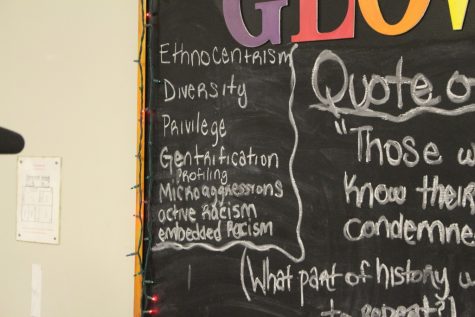 GLOW
Ethnocentrism
Diversity
Privilege
Gentrification
Profiling
Microaggressions
active Racism
embedded Racism
Quote o
"Those w
know their
condemne
(What part of history w
to repeat?)